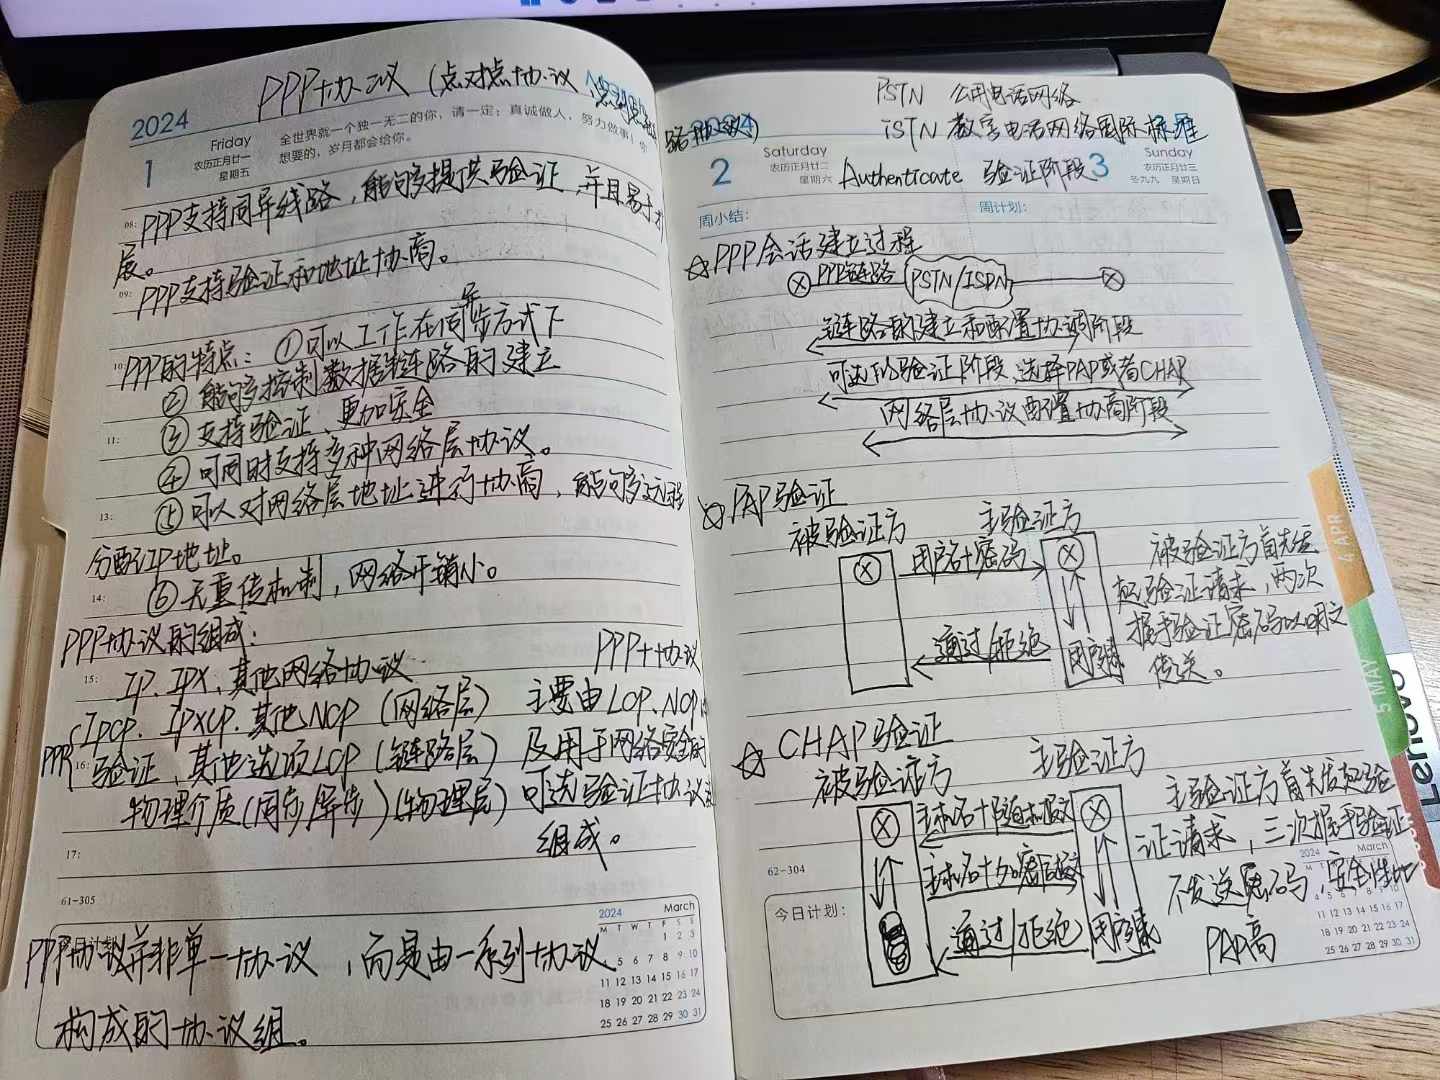 PPP协议（点对点协议
2024
Friday
农历正月廿一
星期五
1
全世界就一个独一无二的你，请一定：真诚做人，努力做事！你
想要的，岁月都会给你。
08:
PPP支持同异线路，能够提供验证，并且易于扩
展。
09:
PPP支持验证和地址协商。
10:
PPP的特点：①可以工作在同异步方式下
②能够控制数据链路的建立
11:
③支持验证、更加安全
④可同时支持多种网络层协议。
⑤可以对网络层地址进行协商，能够远程
13:
分配IP地址。
14:
⑥无重传机制，网络开销小。
PPP协议的组成：
15:
IP、IPX、其他网络协议
IPCP、IPXCP、其他NCP（网络层）
PPP
16:
验证、其他选项LCP（链路层）
物理介质（同步/异步）（物理层）
PPP协议
主要由LCP、NCP以
及用于网络安全的
可选验证协议
组成。
17:
61-305
今日计划：
PPP协议并非单一协议，而是由一系列协议
构成的协议组。
2024 March
M T W T F S S
1 2 3
4 5 6 7 8 9 10
11 12 13 14 15 16 17
18 19 20 21 22 23 24
25 26 27 28 29 30 31
PSTN 公用电话网络
iSTN 数字电话网络国际标准
路协议）
2
Saturday
农历正月廿二
星期六
Authenticate 验证阶段
3
Sunday
农历正月廿三
冬九九 星期日
周小结：
周计划：
☆PPP会话建立过程
PPP链路
PSTN/ISDN
链路的建立和配置协调阶段
可选的验证阶段、选择PAP或者CHAP
网络层协议配置协商阶段
☆PAP验证
被验证方
主验证方
用户名+密码
通过/拒绝
被验证方首先发
起验证请求，两次
握手验证密码以明文
传送。
☆CHAP验证
被验证方
主验证方
主机名+随机报文
通过/拒绝
主验证方首先发起验
证请求，三次握手验证
不发送密码，安全性比
PAP高
62-304
今日计划：
2024 March
11 12 13 14 15 16 17
18 19 20 21 22 23 24
25 26 27 28 29 30 31
4 APR
5 MAY
Lenovo